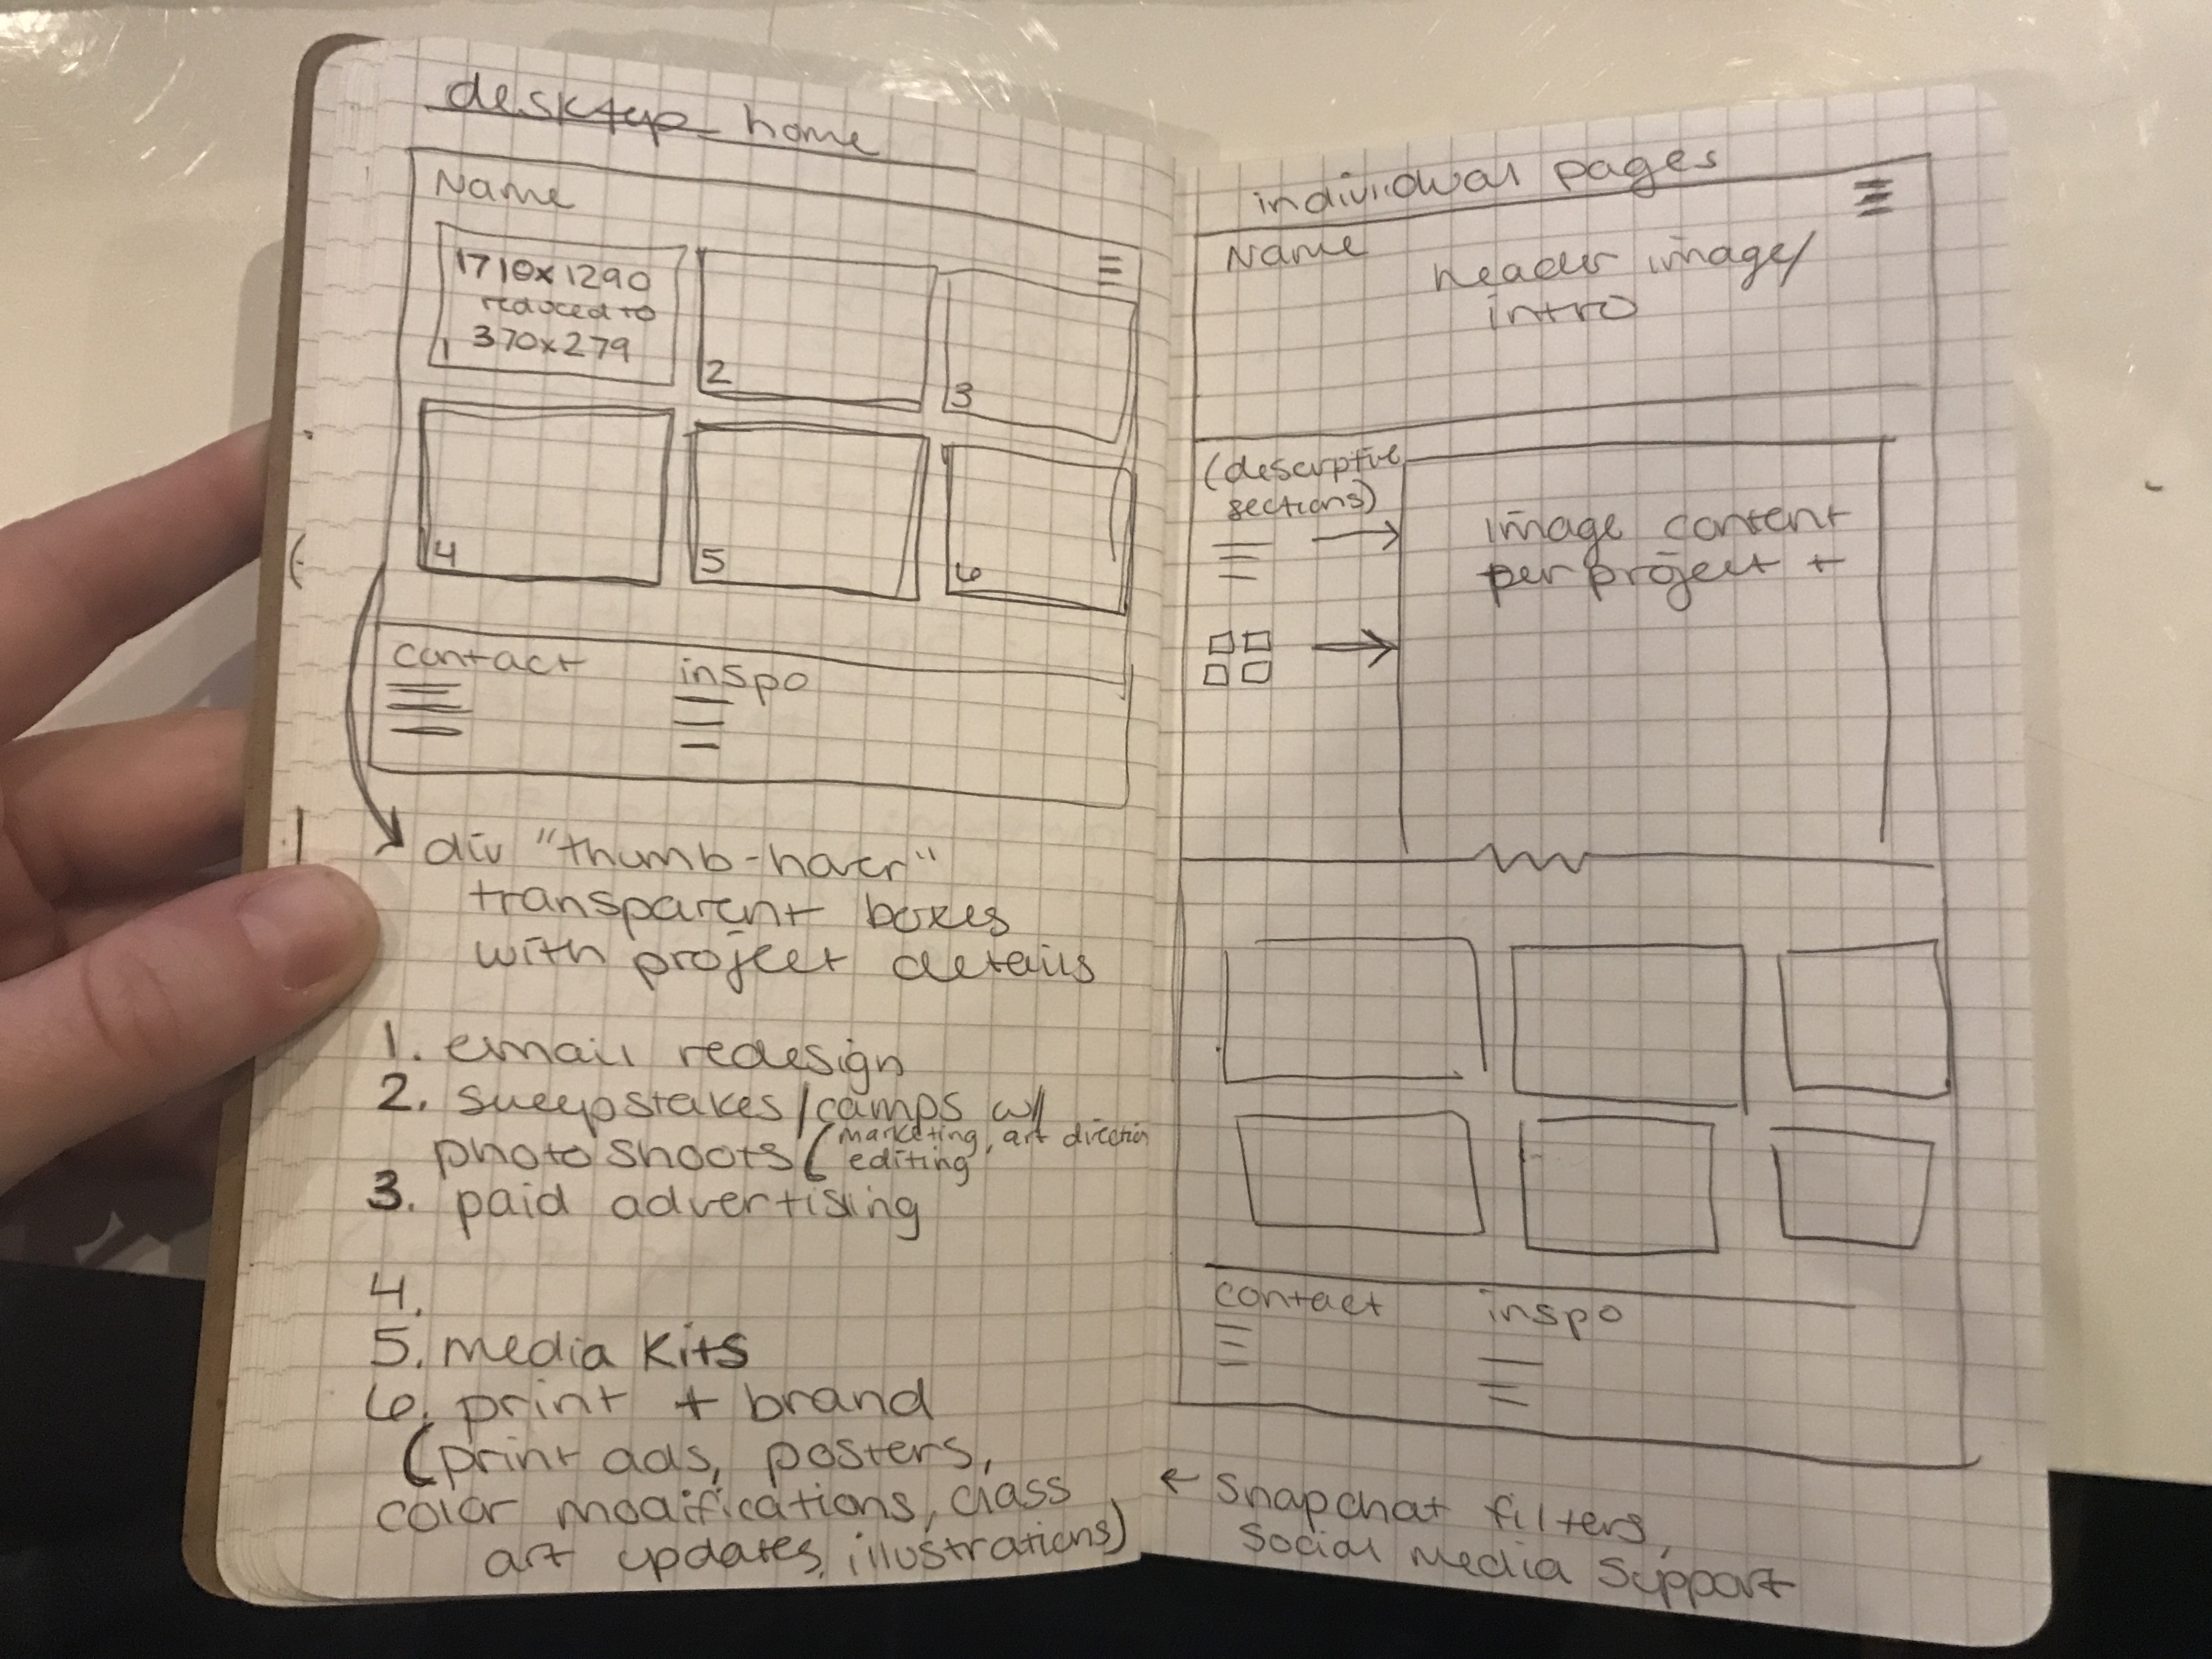 desktop home
Name
1710x1290
reduced to
370x279
1
2
3
4
5
6
contact
inspo
div "thumb-hover"
transparent boxes
with project details
1. email redesign
2. sweepstakes/camps w/
photoshoots (marketing, art direction
editing
3. paid advertising
4.
5. media kits
6. print + brand
(print ads, posters,
color modifications, class
art updates, illustrations)
individual pages
Name
header image/
intro
(descriptive
sections)
image content
per project +
contact
inspo
← snapchat filters,
social media support